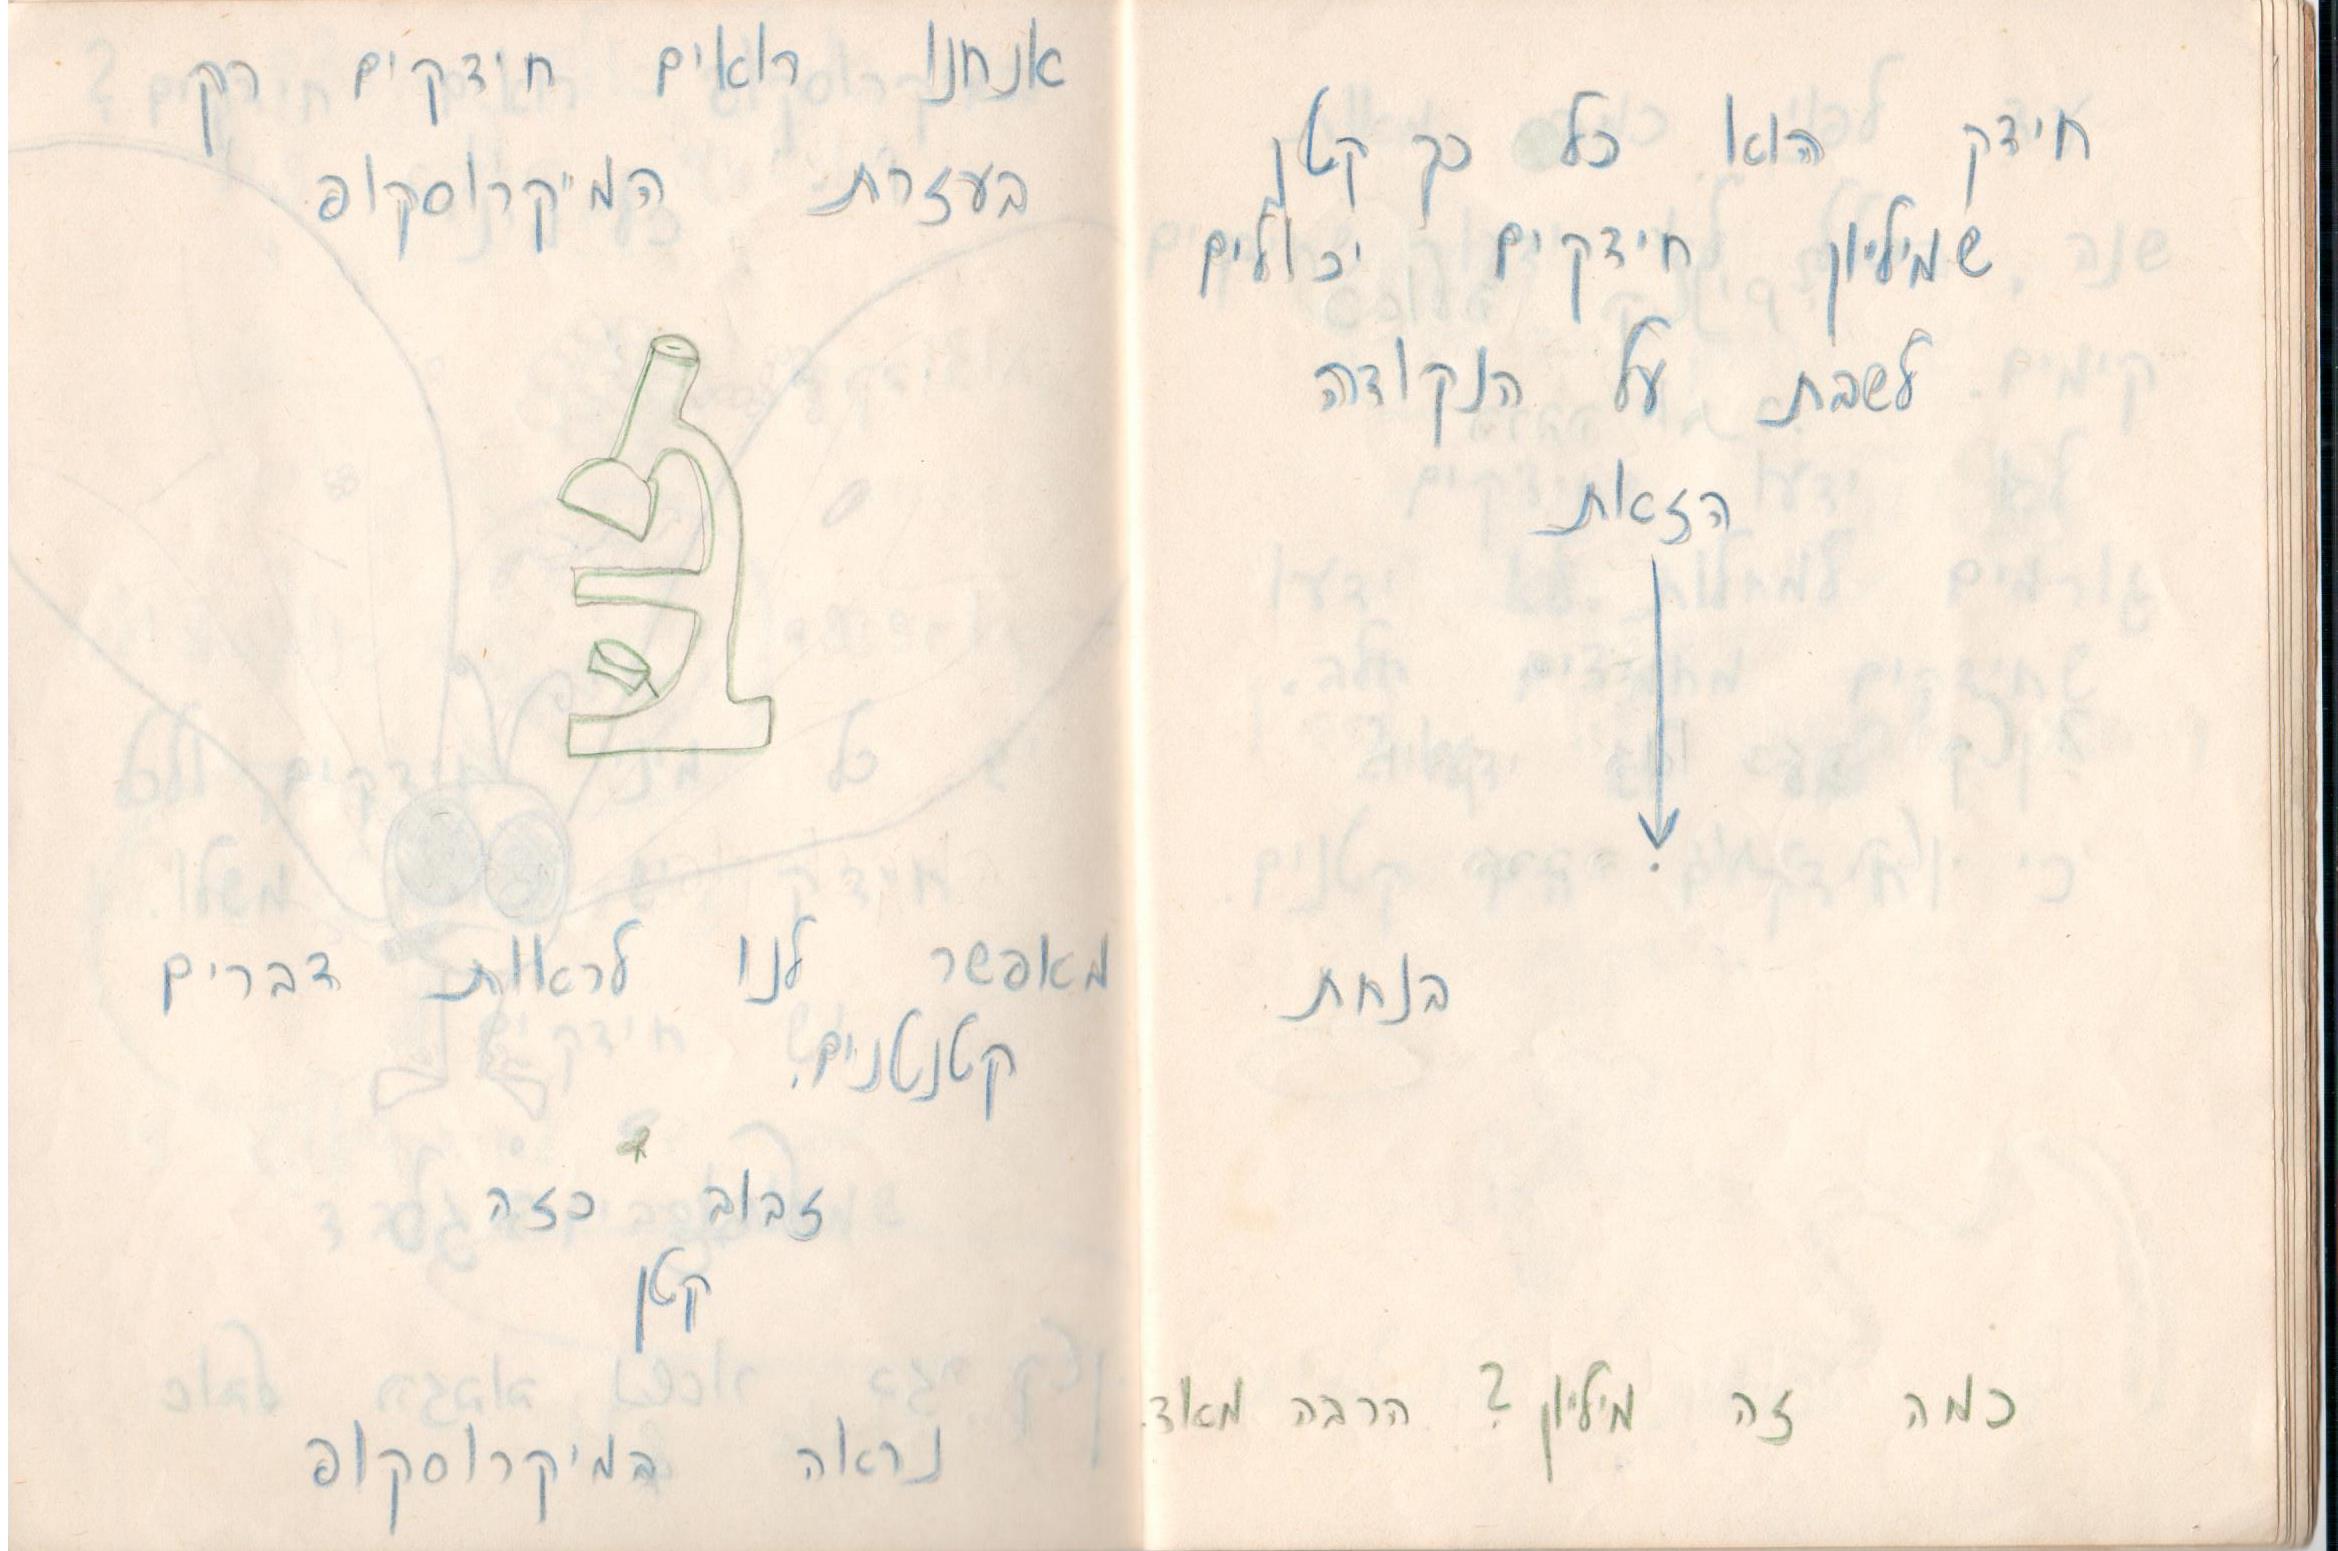 חידק הוא כל כך קטן
שמיליון חידקים יכולים
לשבת על הנקודה
הזאת
בנחת
כמה זה מיליון? הרבה מאוד.
אנחנו רואים חידקים רק
בעזרת המיקרוסקופ
מאפשר לנו לראות דברים
קטנטנים.
זבוב כזה
קטן
נראה במיקרוסקופ